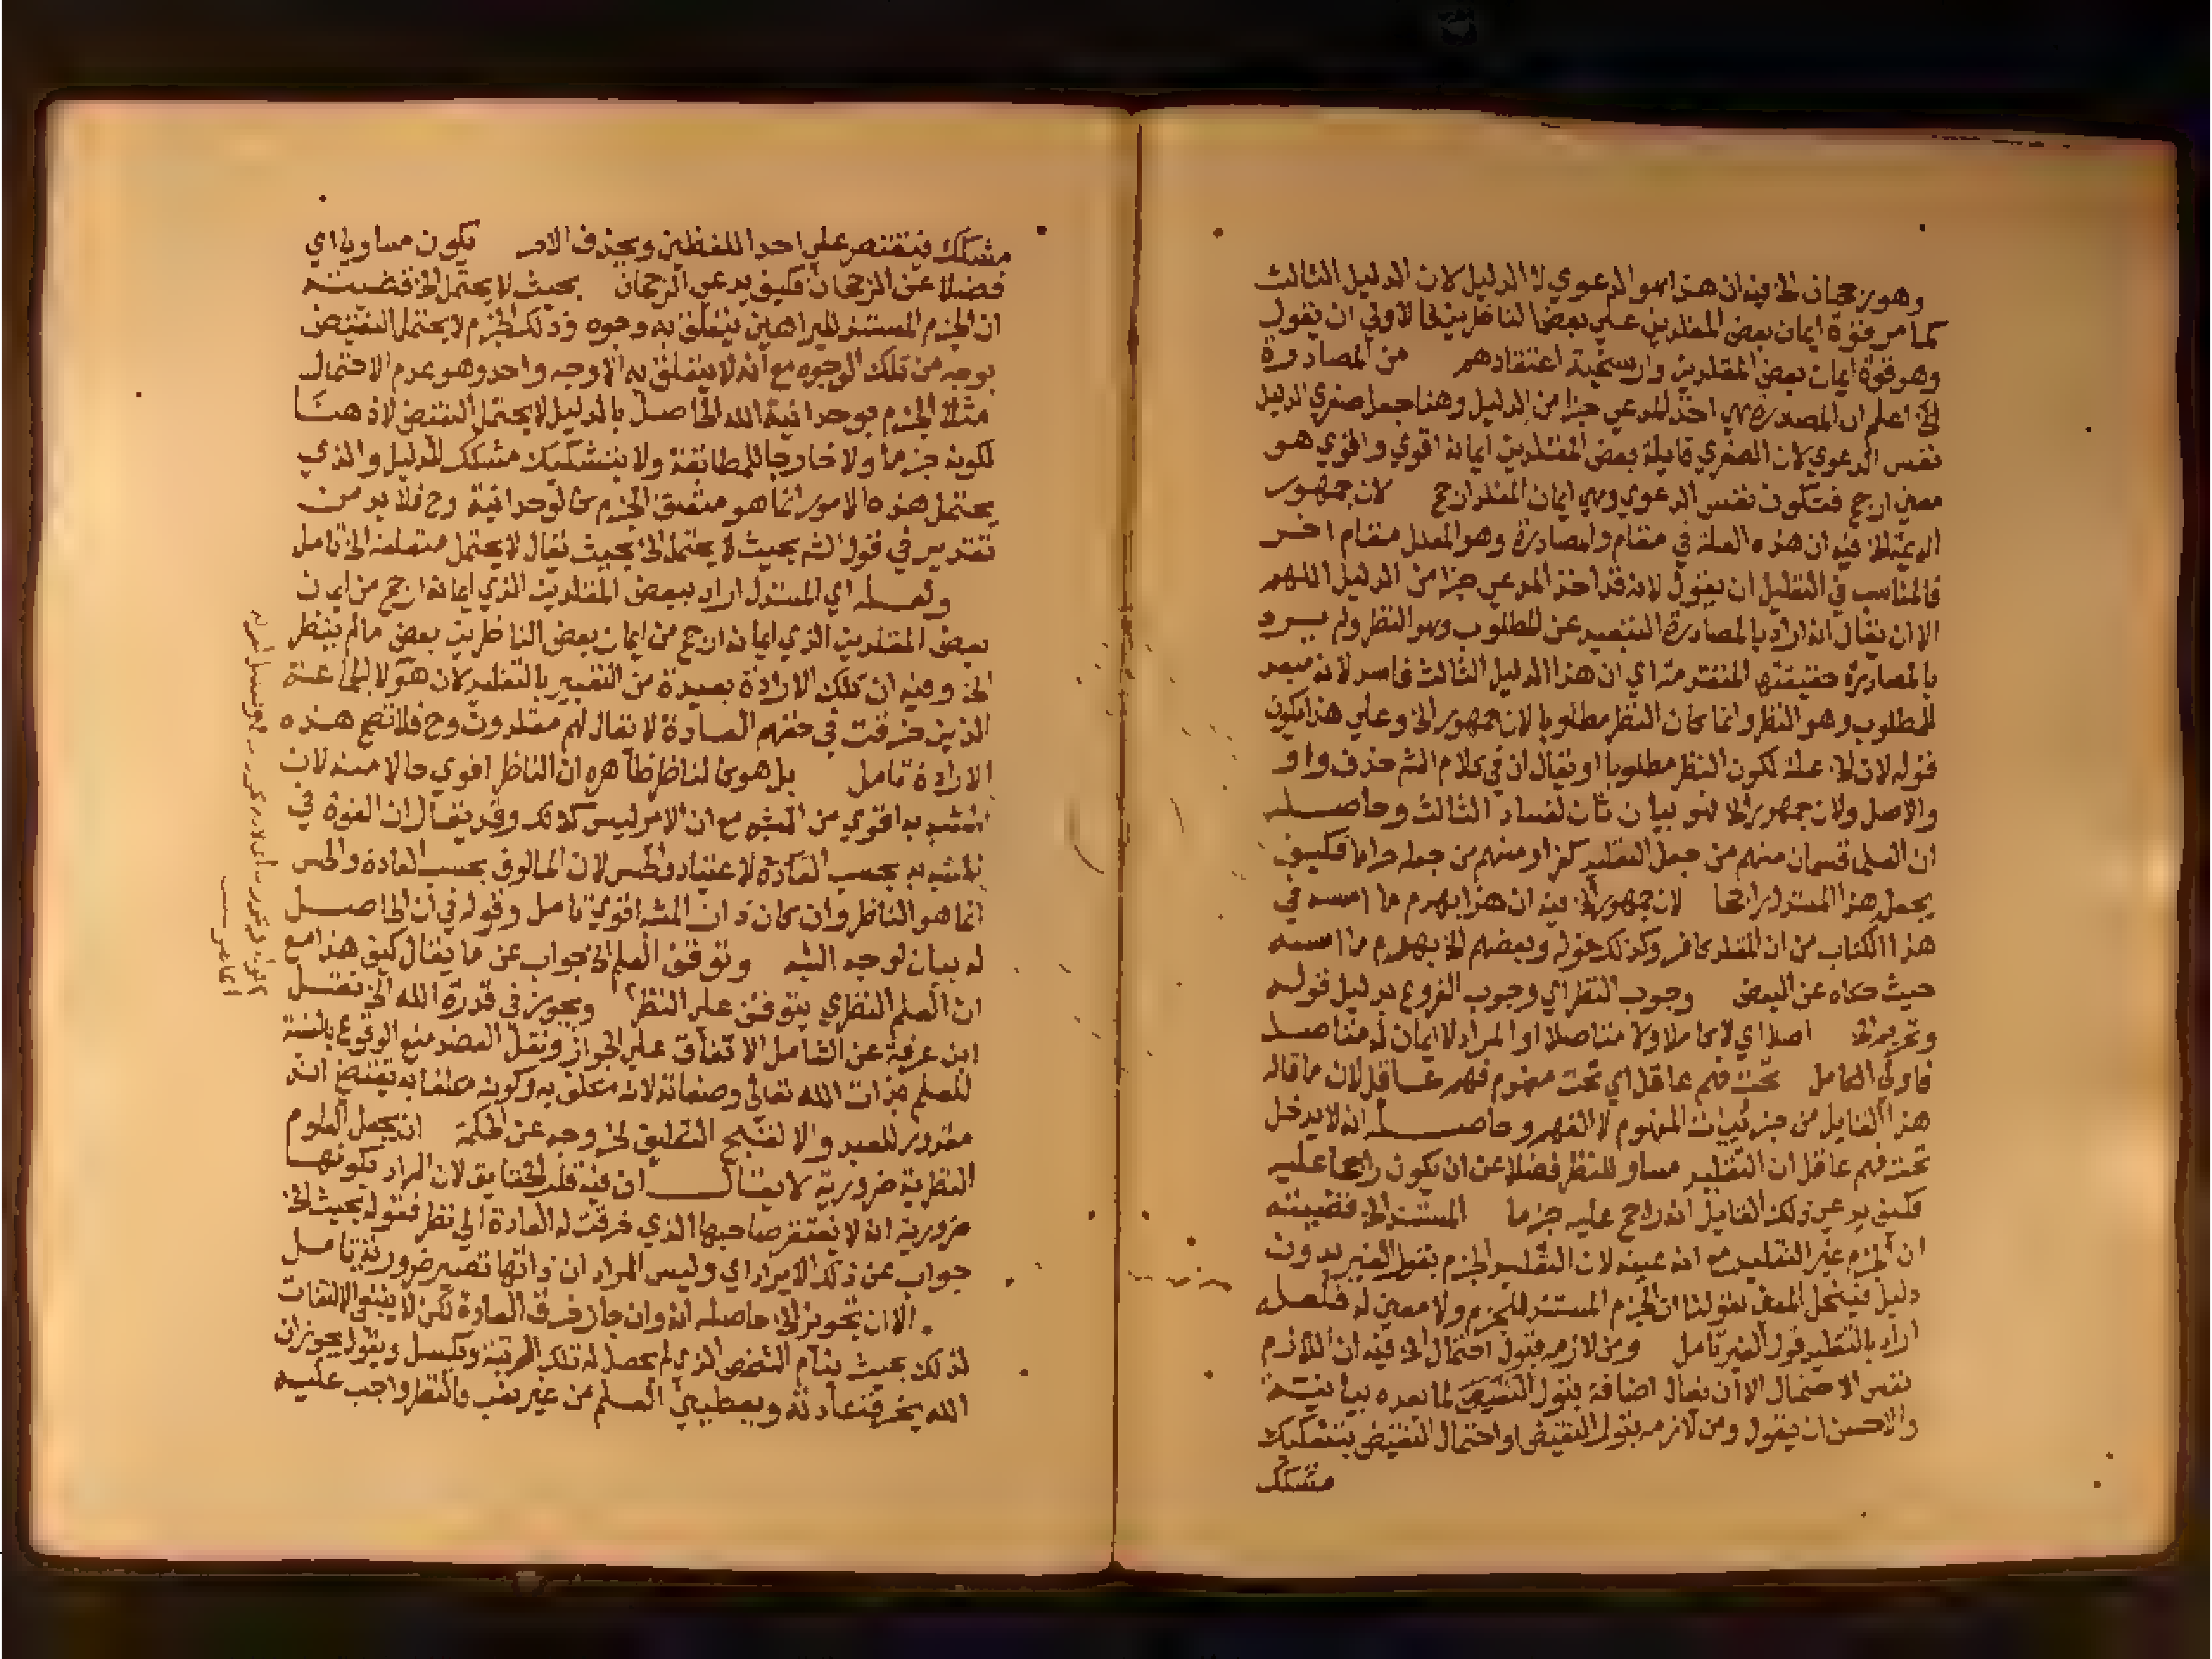 وهو رجحان الخ فيه ان هذا هو الدعوي لا الدليل لان الدليل الثالث
كما مر قوة ايمان بعض المقلدين علي بعض الناظرين فالاولي ان يقول
وهو قوة ايمان بعض المقلدين وارسخية اعتقادهم من المصادرة
الخ اعلم ان المصدرة هي اخذ المدعي جزا من الدليل وهنا جعل صغري الدليل
نفس الدعوي لان الصغري قايلة بعض المقلدين ايمانه اقوي واقوي هو
معني ارجح فتكون نفس الدعوي وهي ايمان المقلد ارجح لان جمهور
الخ فيه ان هذه العلة في مقام والمصادرة وهو المعلل مقام اخر
فالمناسب في التعليل ان يقول لانه قد اخذ المدعي جزا من الدليل اللهم
الا ان يقال انه اراد بالمصادرة التبعيد عن المطلوب وهو النظر ولم يرد
بالمصادرة حقيقتها المتقدمة اي ان هذا الدليل الثالث فاسد لانه مبعد
للمطلوب وهو النظر وانما كان النظر مطلوبا لان جمهور الخ وعلي هذا يكون
قوله لان الخ علة لكون النظر مطلوبا او يقال ان في كلام الشه حذف واو
والاصل ولان جمهور الخ هو بيان ثان لفساد الثالث وحاصله
ان العلما قسمان منهم من جعل التقليد كفرا ومنهم من جعله حراما فكيف
يجعل هذا المستدل راجحا لان جمهور الخ فيه ان هذا يهدم ما اسسه في
هذا الكتاب من ان المقلد كافر وكذلك قوله وبعضهم الخ يهدم ما اسسه
حيث حكاه عن البعض وجوب النظر اي وجوب الفروع بدليل قوله
وتحريم الخ اصلا اي لا كاملا ولا متاصلا او المراد لا ايمان له متاصل
فاولي الكامل تحت فهم عاقل اي تحت مفهوم فهم عاقل لان ما قاله
هذا القايل من جزئيات المفهوم لا الفهم وحاصله انه لا يدخل
تحت فهم عاقل ان التقليد مساو للنظر فضلا عن ان يكون راجحا عليه
فكيف يدعي ذلك القايل انه راجح عليه جزما المستند الخ قضيته
ان الجزم غير التقليد مع انه عينه لان التقليد الجزم بقول الغير بدون
دليل فينحل المعني بقولنا ان الجزم المستند للجزم ولا معني له فلعله
اراد بالتقليد قول الغير تامل ومن لازمه قبول احتمال الخ فيه ان اللازم
نفس الاحتمال الا ان يقال اضافة بقول النقيض لما بعده بيانية
والاحسن ان يقول ومن لازمه بقول النقيض او احتمال النقيض بتشكيك
مشكك
مشكك فيقتصر علي احد اللفظين ويحذف الاخر يكون مساويا اي
فضلا عن الرجحان فكيف يدعي الرجحان بحيث لا يحتمل الخ قضيته
ان الجزم المستند للبراهين يتعلق به وجوه وذلك الجزم لا يحتمل النقيض
بوجه من تلك الوجوه مع انه لا يتعلق به الا وجه واحد وهو عدم الاحتمال
مثلا الجزم بوحدانية الله الحاصل بالدليل لا يحتمل النقيض لا ذهنا
لكونه جزما ولا خارجا للمطابقة ولا بتشكيك مشكك للدليل والذي
يحتمل هذه الامور انما هو متعلق الجزم كالوحدانية وح فلا بد من
تقدير في قول الشه بحيث لا يحتمل الخ بحيث يقال لا يحتمل متعلقه الخ تامل
ولعله اي المستدل اراد ببعض المقلدين الذي ايمانه ارجح من ايمان
بعض المقلدين الذي ايمانه ارجح من ايمان بعض الناظرين بعض ما لم ينظر
الخ وفيه ان تلك الارادة بعيدة من التعبير بالتقليد لان هولا الجماعة
الذين خرقت في حقهم العادة لا يقال لهم مقلدون وح فلا تصح هذه
الارادة تامل بل هو كالناظر ظاهره ان الناظر اقوي حالا منه لان
المشبه به اقوي من المشبه مع ان الامر ليس كذلك وقد يقال ان القوة في
المشبه به بحسب العادة لاعتياد والحس لان المالوف بحسب العادة والحس
انما هو الناظر وان كان ذات المشبه اقوي تامل وقوله في ان الحاصل
له بيان لوجه الشبه وتوقف العلم الخ جواب عن ما يقال كيف هذا مع
ان العلم النظري يتوقف علي النظر ويجوز في قدرة الله الخ نقل
ابن عرفة عن الشامل الاتفاق علي الجواز ونقل العضد منع الوقوع بالنسبة
للعلم بذات الله تعالي وصفاته لانه مكلف به وكونه مكلفا به يقتضي انه
مقدور للعبد والا لقبح التكليف لخروجه عن الحكمة ان يجعل العلوم
النظرية ضرورية لا يقال ان فيه قلب الحقايق لان المراد بكونها
ضرورية انه لا يفتقر صاحبها الذي خرقت له العادة الي نظر فقوله بحيث الخ
جواب عن ذلك الايراد اي وليس المراد ان ذاتها تصير ضرورية تامل
الا ان تجويز الخ حاصله انه وان جاز خرق العادة لكن لا ينبغي الالتفات
لذلك بحيث ينام الشخص الذي لم يحصل له تلك المرتبة ويكسل ويقول يجوز ان
الله يخرق عادته ويعطيني العلم من غير تعب والنظر واجب عليه